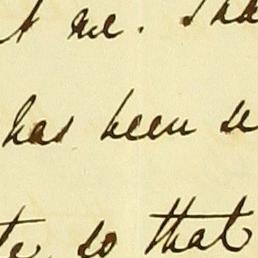 me.
has been se
so that